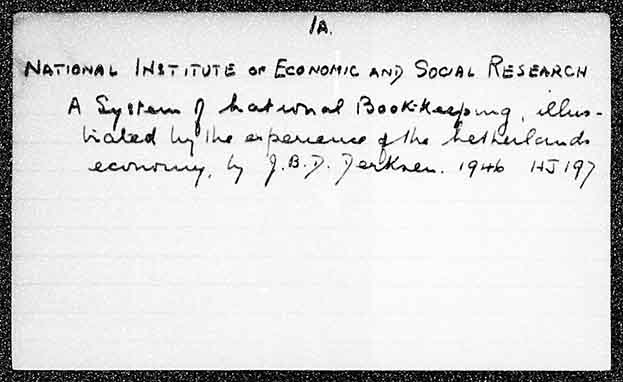 1A.
NATIONAL INSTITUTE OF ECONOMIC AND SOCIAL RESEARCH
A System of National Book-keeping, illus-
trated by the experience of the Netherlands
economy, by J.B.D. Derksen. 1946 HJ197